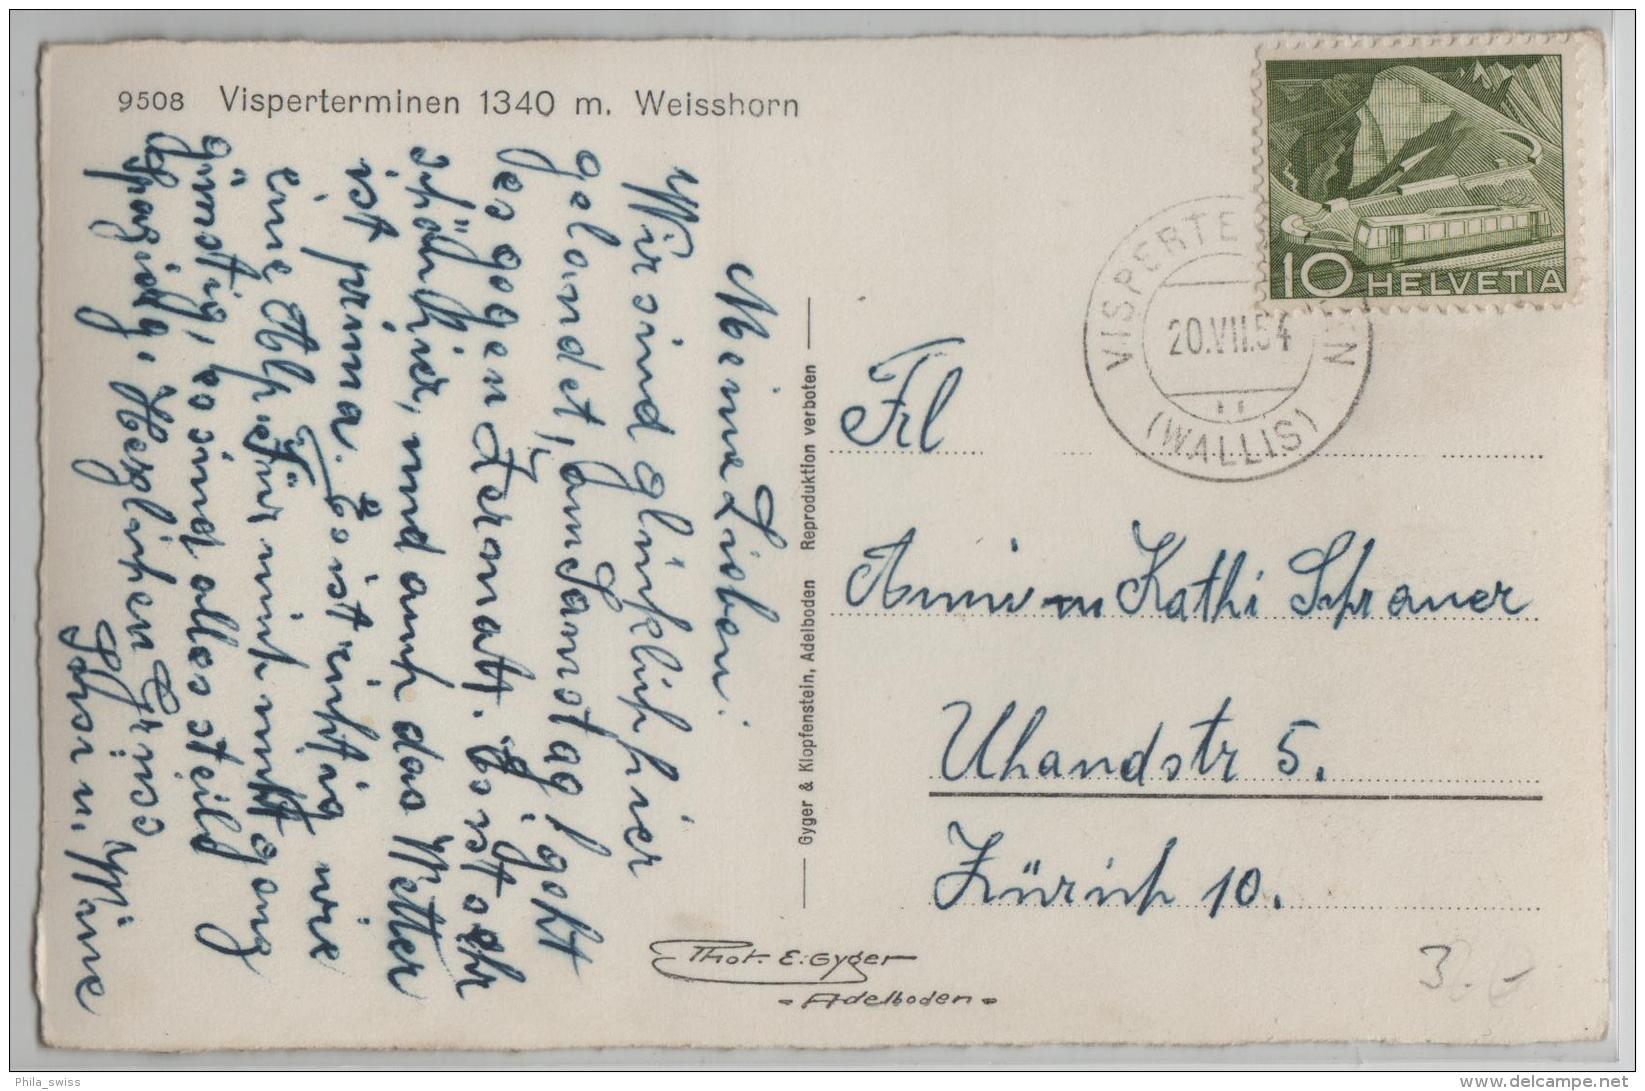 9508 Visperterminen 1340 m. Weisshorn
Meine Lieben!
Wir sind glücklich hier
gelandet, am Samstag goht
es gogen Zermatt. Es ist sehr
schön hier, und auch das Wetter
ist prima. Es ist richtig wie
eine Alp. Für mich nicht ganz
günstig, es sind alles steile
Herzlichen Gruss
u.
Gyger & Klopfenstein, Adelboden Reproduktion verboten
Phot. E. Gyger
- Adelboden -
10 HELVETIA
VISPERTE EN
20.VII.54
(WALLIS)
Frl
Kathi
Uhandstr 5.
Zürich 10.
3. -
Phila_swiss
www.delcampe.net